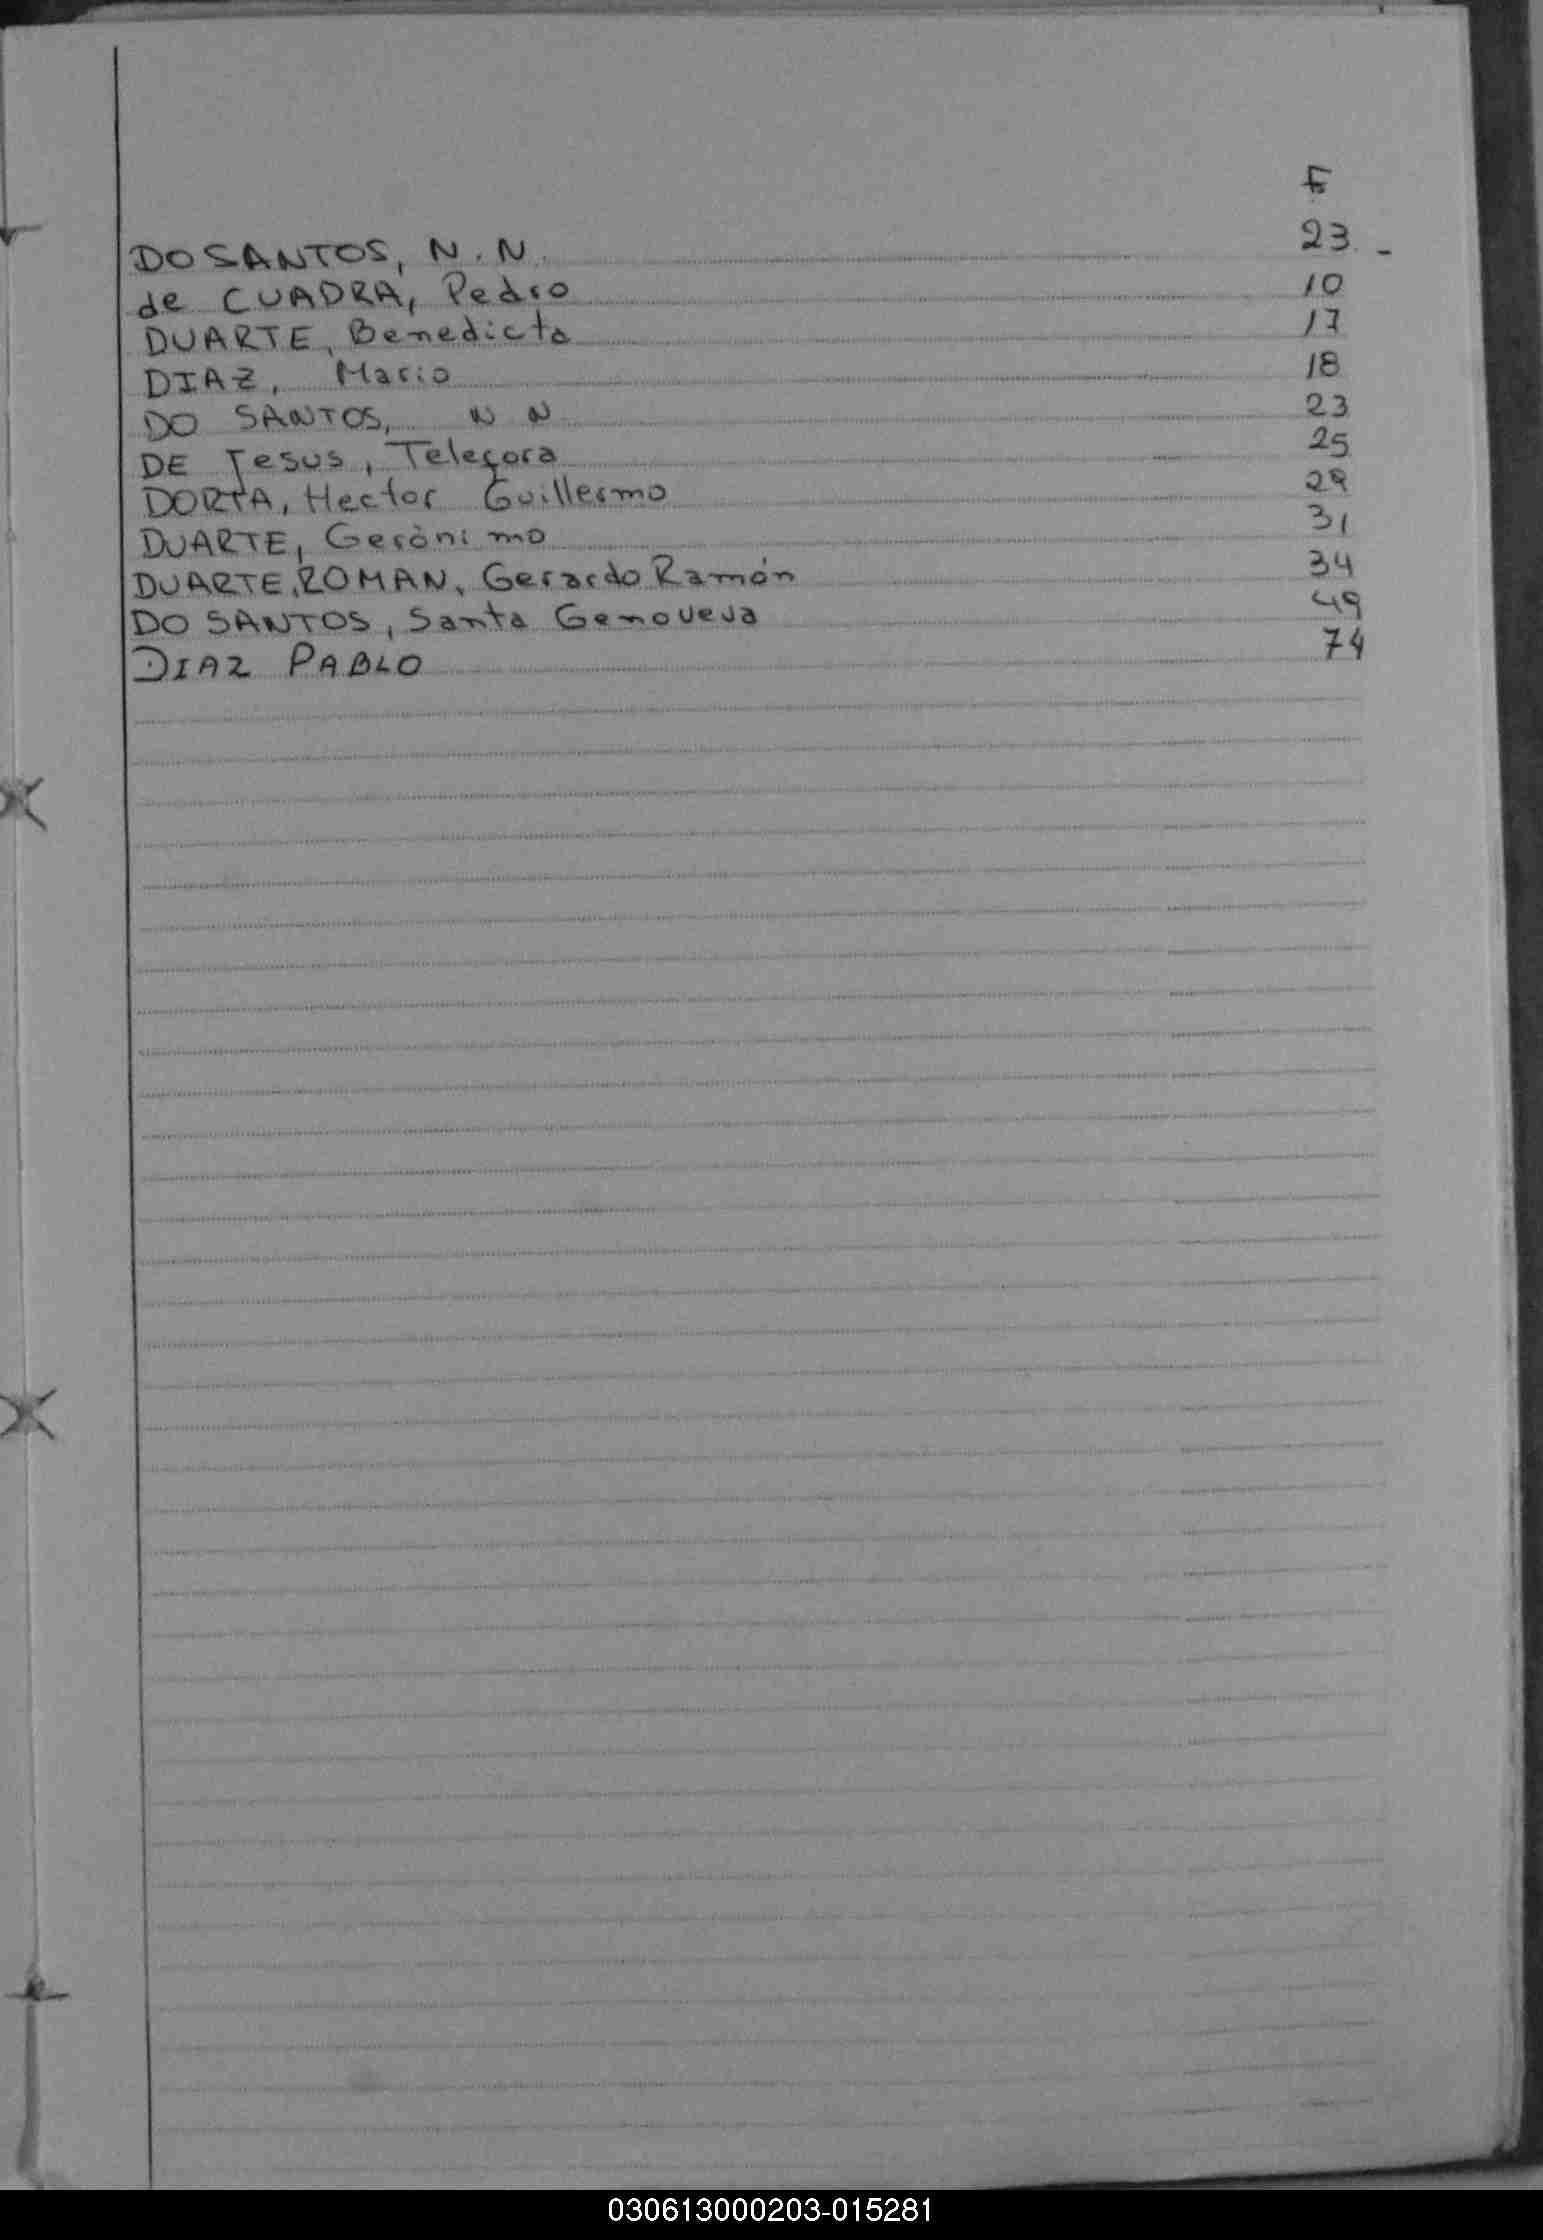 F
DO SANTOS, N.N. 23.-
de CUADRA, Pedro 10
DUARTE, Benedicta 17
DIAZ, Mario 18
DO SANTOS, N N 23
DE Jesus, Telefora 25
DORTA, Hector Guillermo 29
DUARTE, Gerònimo 31
DUARTE, ROMAN, Gerardo Ramón 34
DO SANTOS, Santa Genoveva 49
DIAZ PABLO 74
030613000203-015281